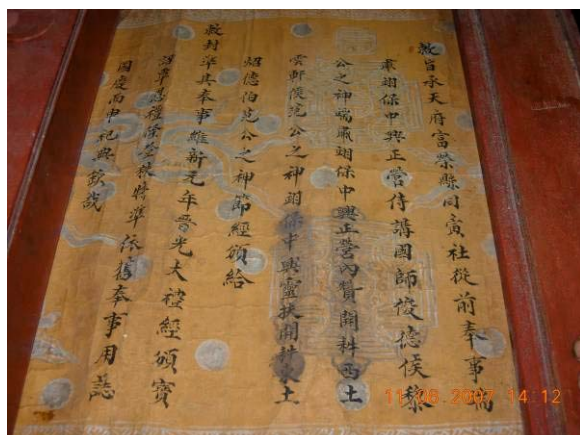 敕旨承天府富榮縣同寅社從前奉事端
肅翊保中興正營侍講國師俊德侯黎
公之神端肅翊保中興正營內贊開科西土
雲郵侯范公之神翊保中興靈扶開耕本土
紹德伯范公之神節經頒給
敕封準其奉事維新元年晉光大禮經頒寶
詔覃恩禮隆登秩特準依舊奉事用誌
國慶而申祀典欽哉
11 06 2007 14:12